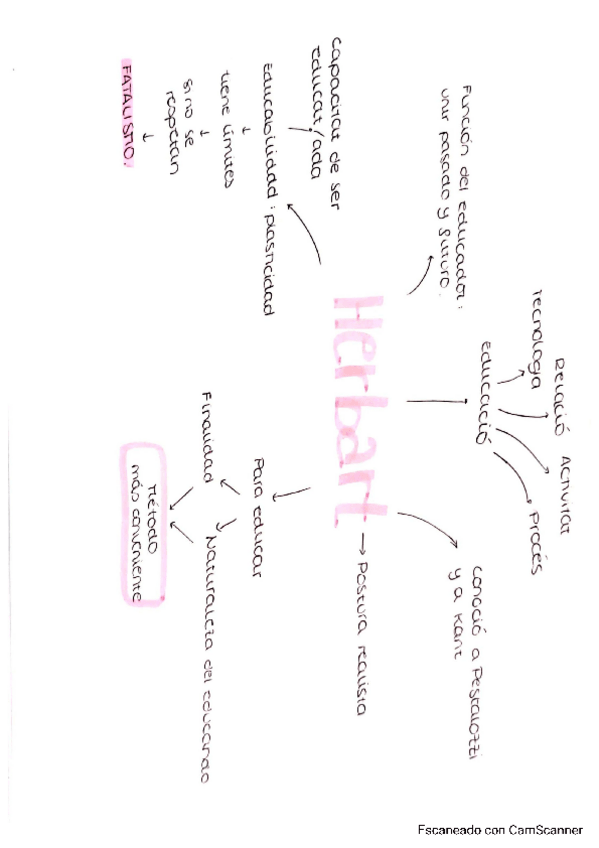 Función del educador:
unir pasado y futuro.
Tecnologia
Relació
Activitat
Procés
educació
conoció a Pestalozzi
y a Kant
Capacitat de ser
educat/ada
Educabilidad: plasticidad
tiene límites
si no se
respetan
FATALISMO.
Herbart
→ Postura realista
Para educar
Finalidad
Naturaleza del educando
Método
más conveniente
Escaneado con CamScanner